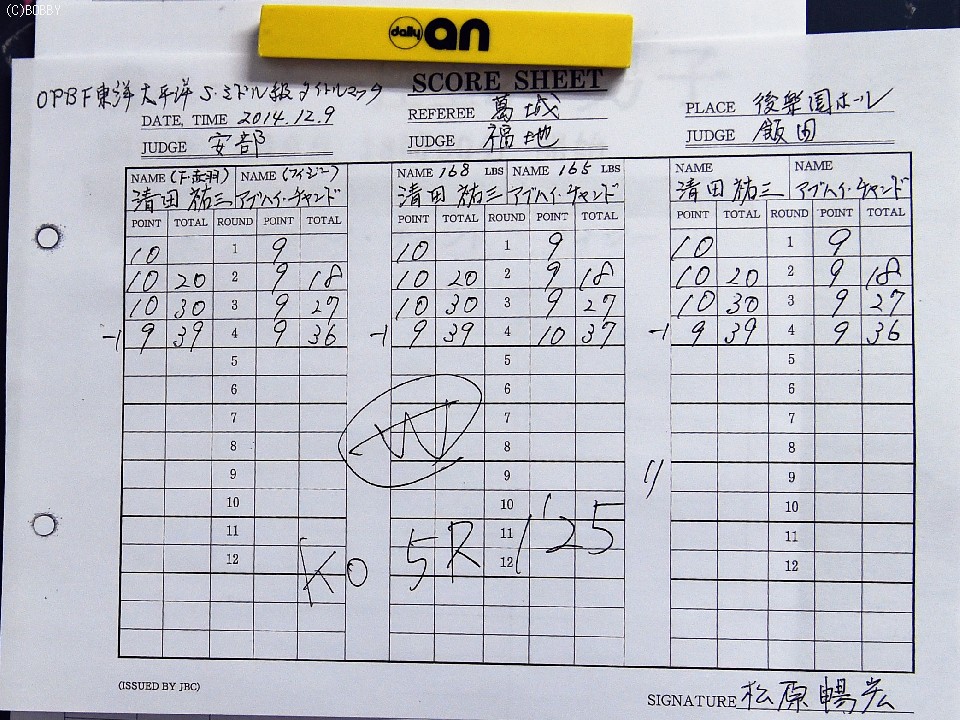 (C)BOBBY
daily an
SCORE SHEET
OPBF東洋太平洋S.ミドル級タイトルマッチ
DATE, TIME 2014.12.9
REFEREE 葛城
PLACE 後楽園ホール
JUDGE 安部
JUDGE 福地
JUDGE 飯田
NAME (ワ・赤羽) NAME (フィジー) NAME 168 LBS NAME 165 LBS NAME NAME
清田祐三 アブハイ・チャンド 清田祐三 アブハイ・チャンド 清田祐三 アブハイ・チャンド
POINT TOTAL ROUND POINT TOTAL POINT TOTAL ROUND POINT TOTAL POINT TOTAL ROUND POINT TOTAL
10 1 9 10 1 9 10 1 9
10 20 2 9 18 10 20 2 9 18 10 20 2 9 18
10 30 3 9 27 10 30 3 9 27 10 30 3 9 27
-1 9 39 4 9 36 -1 9 39 4 10 37 -1 9 39 4 9 36
5 5 5
6 6 6
7 7 7
8 W 8 8
9 9 9
10 10 10
11 11 11
12 12 12
KO 5R 1'25 "
(ISSUED BY JBC)
SIGNATURE 松原暢宏